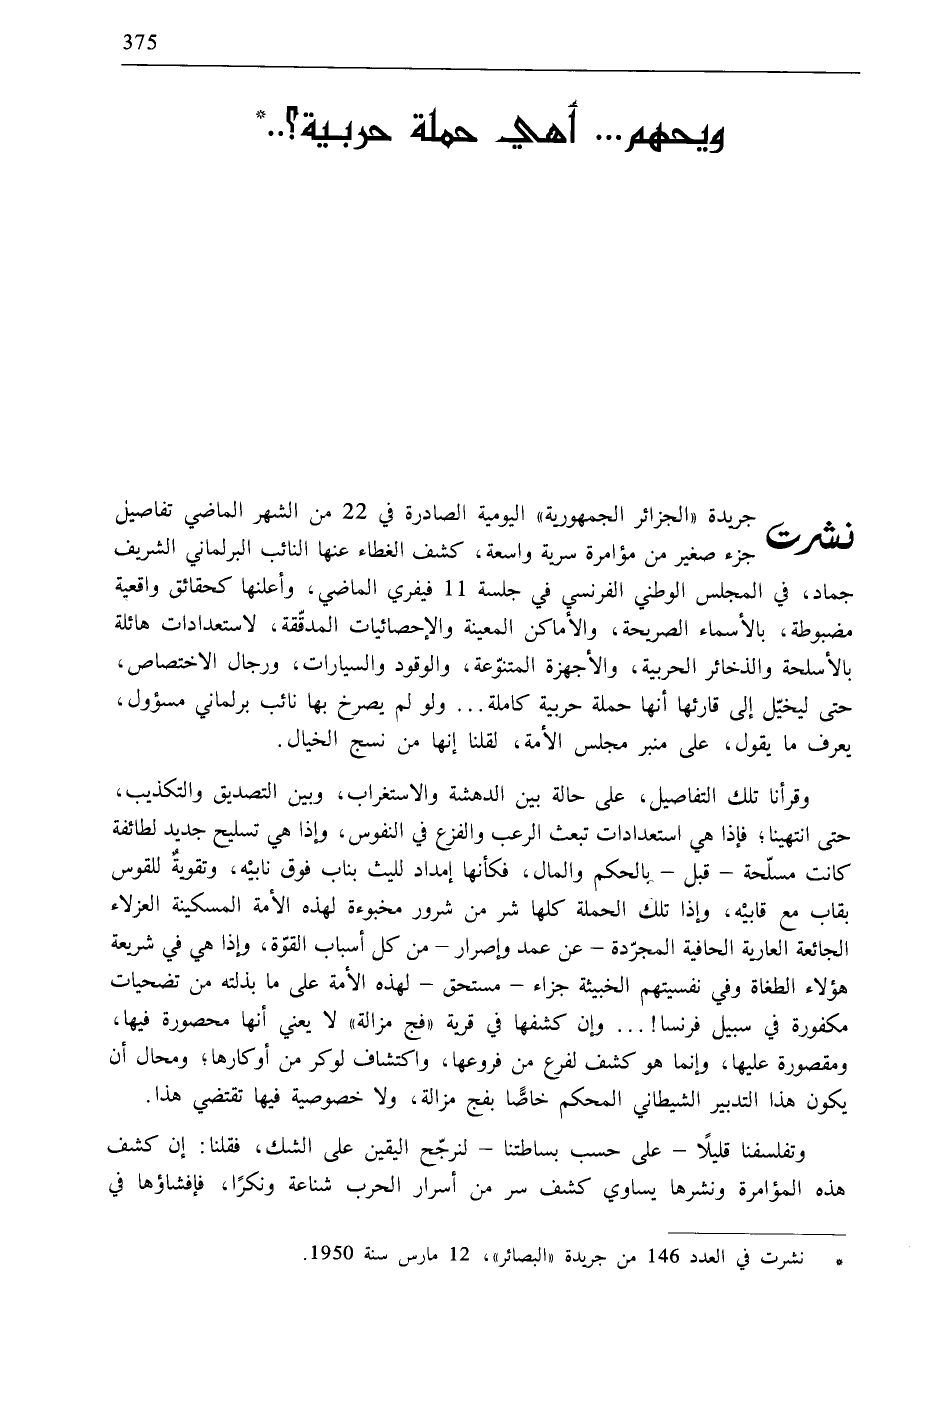 375
ويحهم... أهي حملة حربية؟..*
نشرت جريدة «الجزائر الجمهورية» اليومية الصادرة في 22 من الشهر الماضي تفاصيل
جزء صغير من مؤامرة سرية واسعة، كشف الغطاء عنها النائب البرلماني الشريف
جماد، في المجلس الوطني الفرنسي في جلسة 11 فيفري الماضي، وأعلنها كحقائق واقعية
مضبوطة، بالأسماء الصريحة، والأماكن المعينة والإحصائيات المدقّقة، لاستعدادات هائلة
بالأسلحة والذخائر الحربية، والأجهزة المتنوّعة، والوقود والسيارات، ورجال الاختصاص،
حتى ليخيّل إلى قارئها أنها حملة حربية كاملة... ولو لم يصرخ بها نائب برلماني مسؤول،
يعرف ما يقول، على منبر مجلس الأمة، لقلنا إنها من نسج الخيال.
وقرأنا تلك التفاصيل، على حالة بين الدهشة والاستغراب، وبين التصديق والتكذيب،
حتى انتهينا؛ فإذا هي استعدادات تبعث الرعب والفزع في النفوس، وإذا هي تسليح جديد لطائفة
كانت مسلّحة – قبل – بالحكم والمال، فكأنها إمداد لليث بناب فوق نابيْه، وتقويةٌ للقوس
بقاب مع قابيْه، وإذا تلك الحملة كلها شر من شرور مخبوءة لهذه الأمة المسكينة العزلاء
الجائعة العارية الحافية المجرّدة – عن عمد وإصرار – من كل أسباب القوّة، وإذا هي في شريعة
هؤلاء الطغاة وفي نفسيتهم الخبيثة جزاء – مستحق – لهذه الأمة على ما بذلته من تضحيات
مكفورة في سبيل فرنسا!... وإن كشفها في قرية «فج مزالة» لا يعني أنها محصورة فيها،
ومقصورة عليها، وإنما هو كشف لفرع من فروعها، واكتشاف لوكر من أوكارها؛ ومحال أن
يكون هذا التدبير الشيطاني المحكم خاصًّا بفج مزالة، ولا خصوصية فيها تقتضي هذا.
وتفلسفنا قليلًا – على حسب بساطتنا – لنرجّح اليقين على الشك، فقلنا: إن كشف
هذه المؤامرة ونشرها يساوي كشف سر من أسرار الحرب شناعة ونكرًا، فإفشاؤها في
* نشرت في العدد 146 من جريدة «البصائر»، 12 مارس سنة 1950.